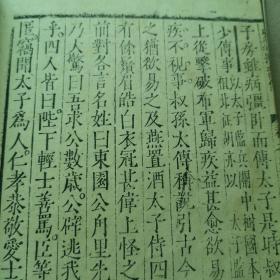 子房雖病彊臥而傅太子是
少傅事
上從擊破布軍歸疾益甚愈欲易
疾不視事叔孫太傅稱說引古今
之猶欲易之及燕置酒太子侍四
有餘鬚眉皓白衣冠甚偉上怪之
前對各言名姓曰東園公角里先
乃大驚曰吾求公數歲公辟逃我
乎四人皆曰陛下輕士善罵臣等
匿竊聞太子爲人仁孝恭敬愛士